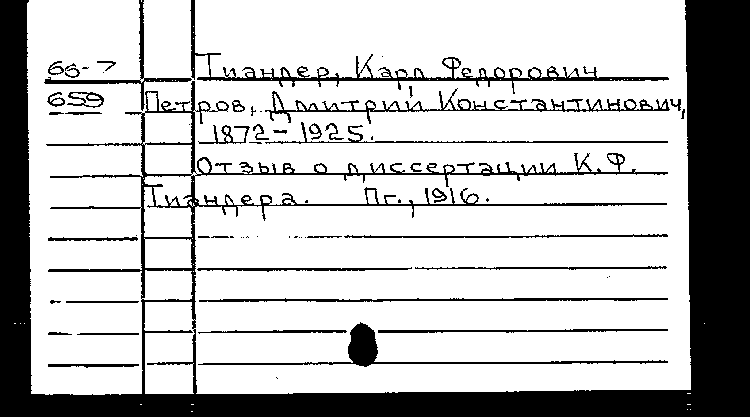 66-7 Тиандер, Карл Федорович
659 Петров, Дмитрий Константинович,
1872-1925.
Отзыв о диссертации К.Ф.
Тиандера. Пг., 1916.